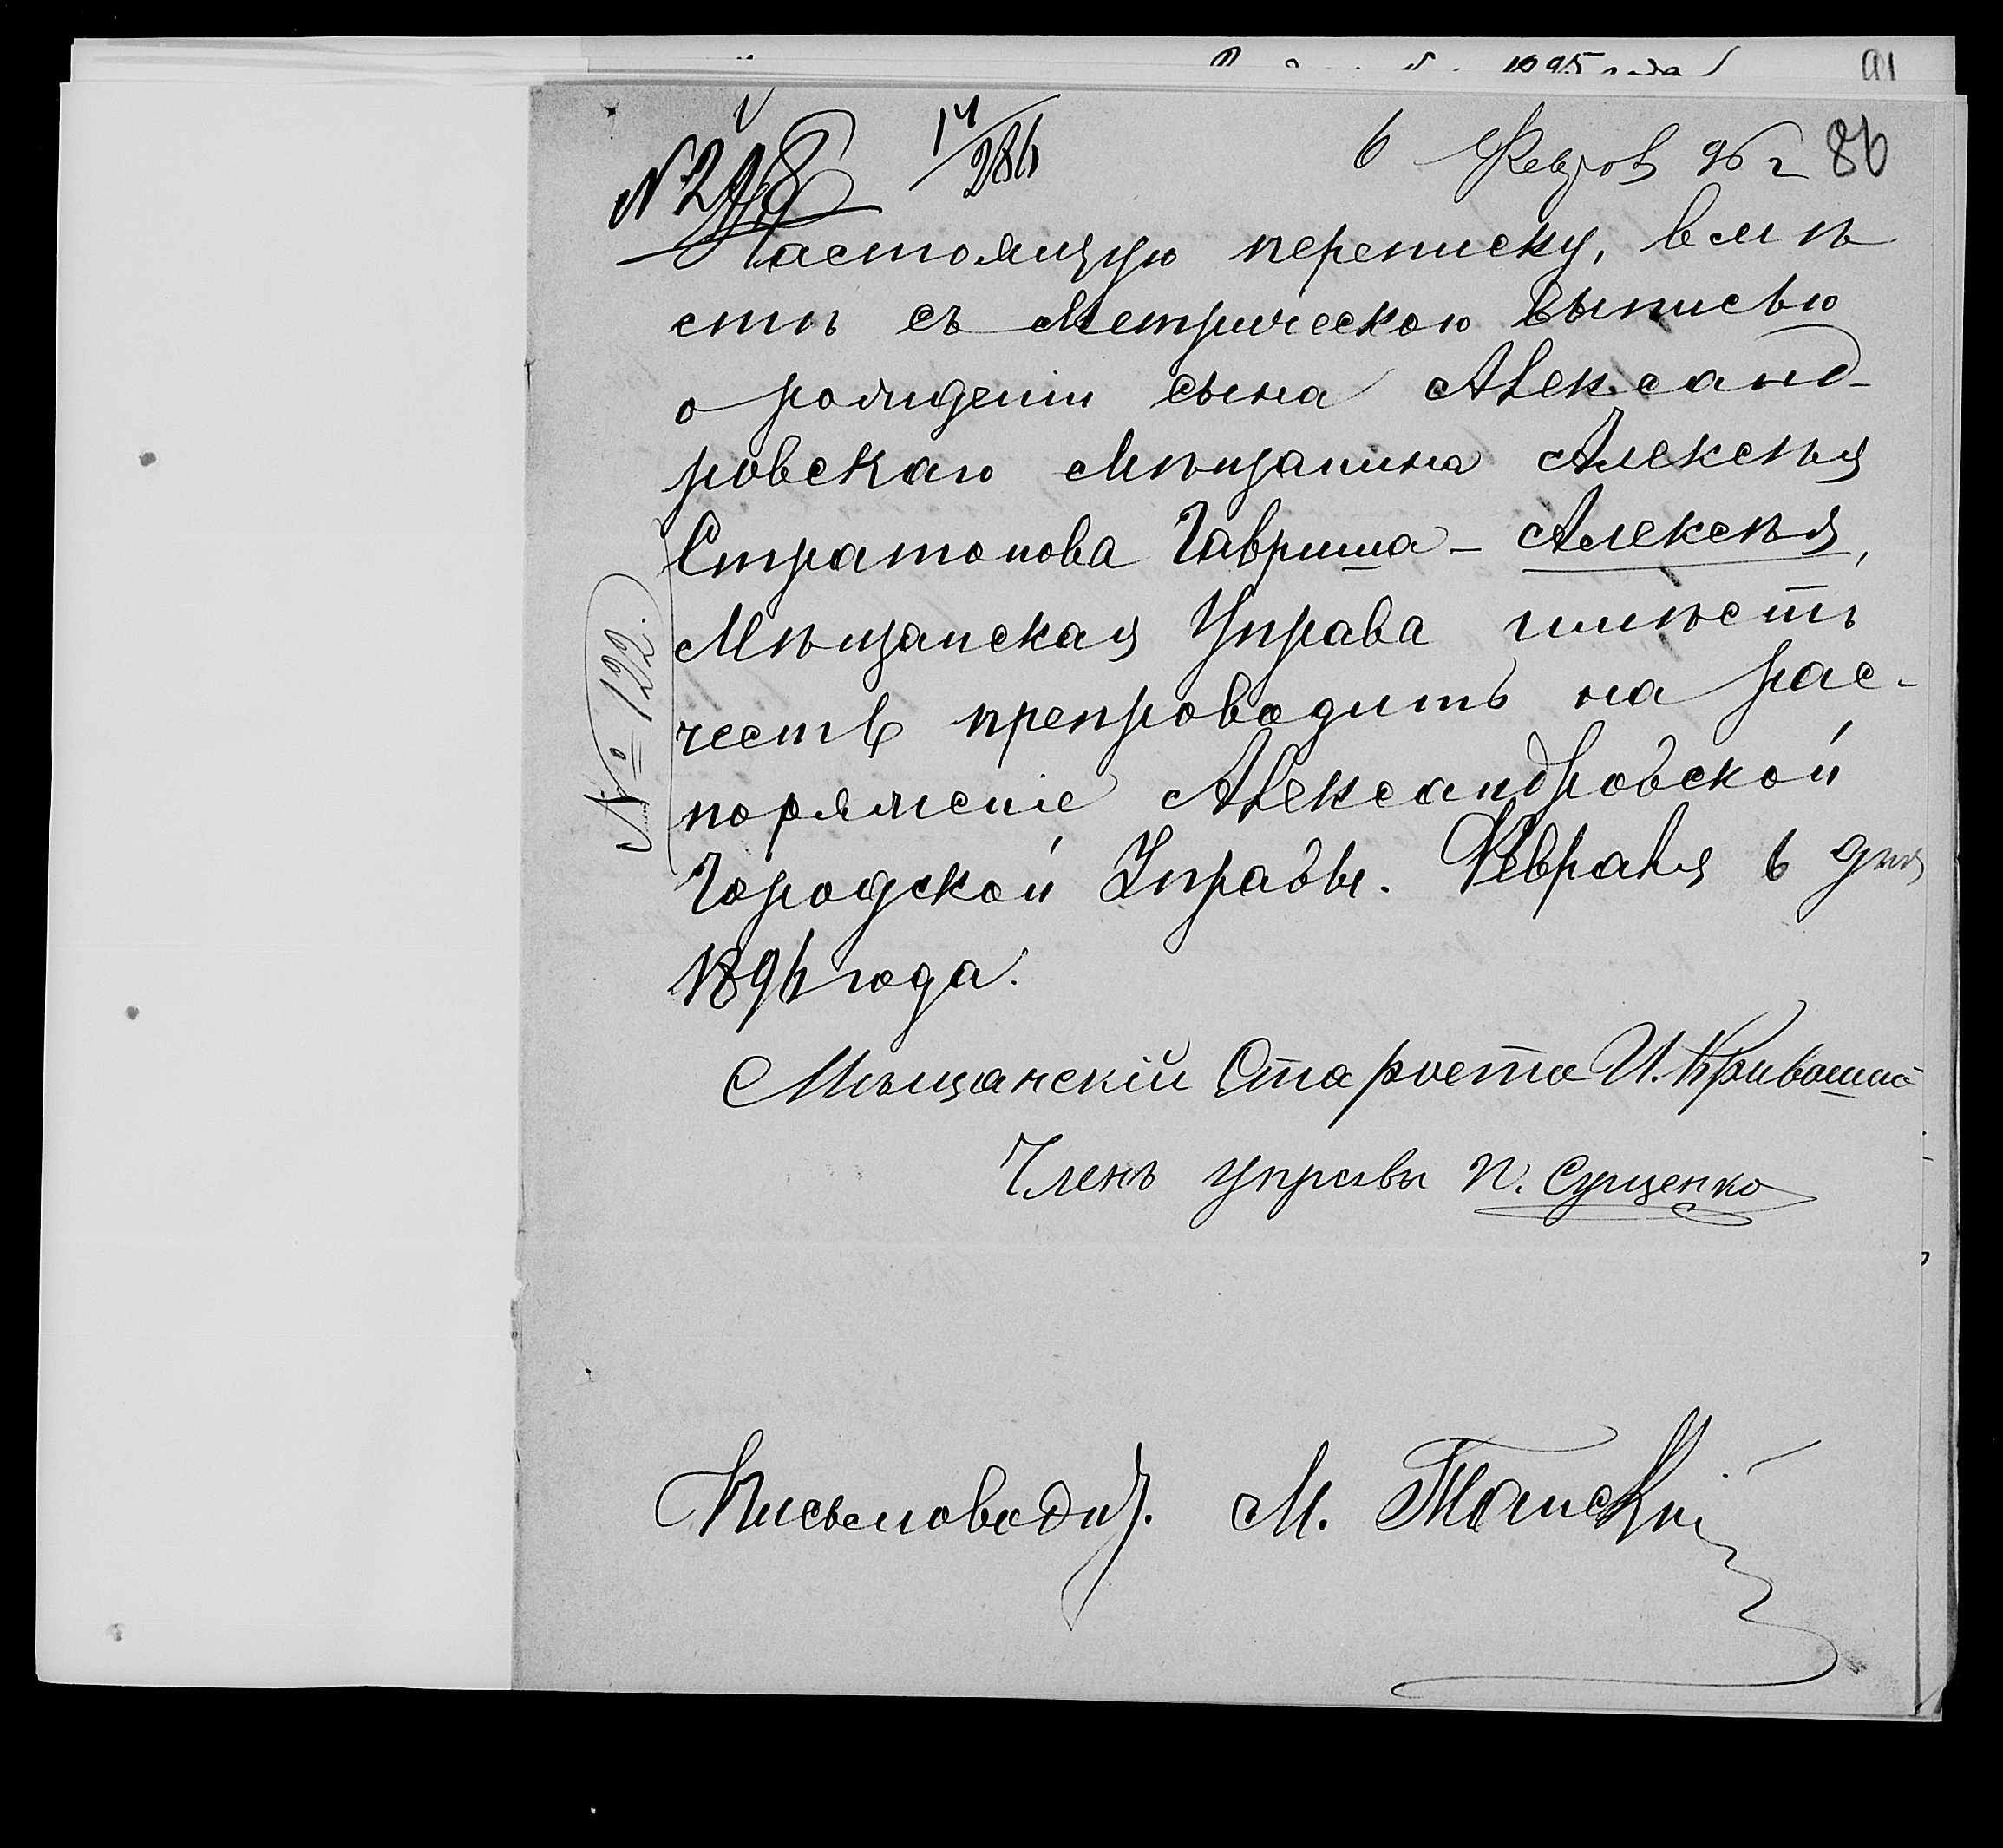 1895 года
91
№ 298
14/286
6 Февр 96 г 86
Настоящую переписку, вмѣ
стѣ съ Метрическою выписью
о рожденіи сына Александ-
ровскаго Мѣщанина Алексѣя
Стратонова Гавриша - Алексѣя,
Мѣщанская Управа имѣетъ
честь препроводить на рас-
поряженіе Александровской
Городской Управы. Февраля 6 дня
1896 года.
№ 122.
Мѣщанскій Староста И. Кривошай
Членъ управы П. Сущенко
Письмоводит. М.